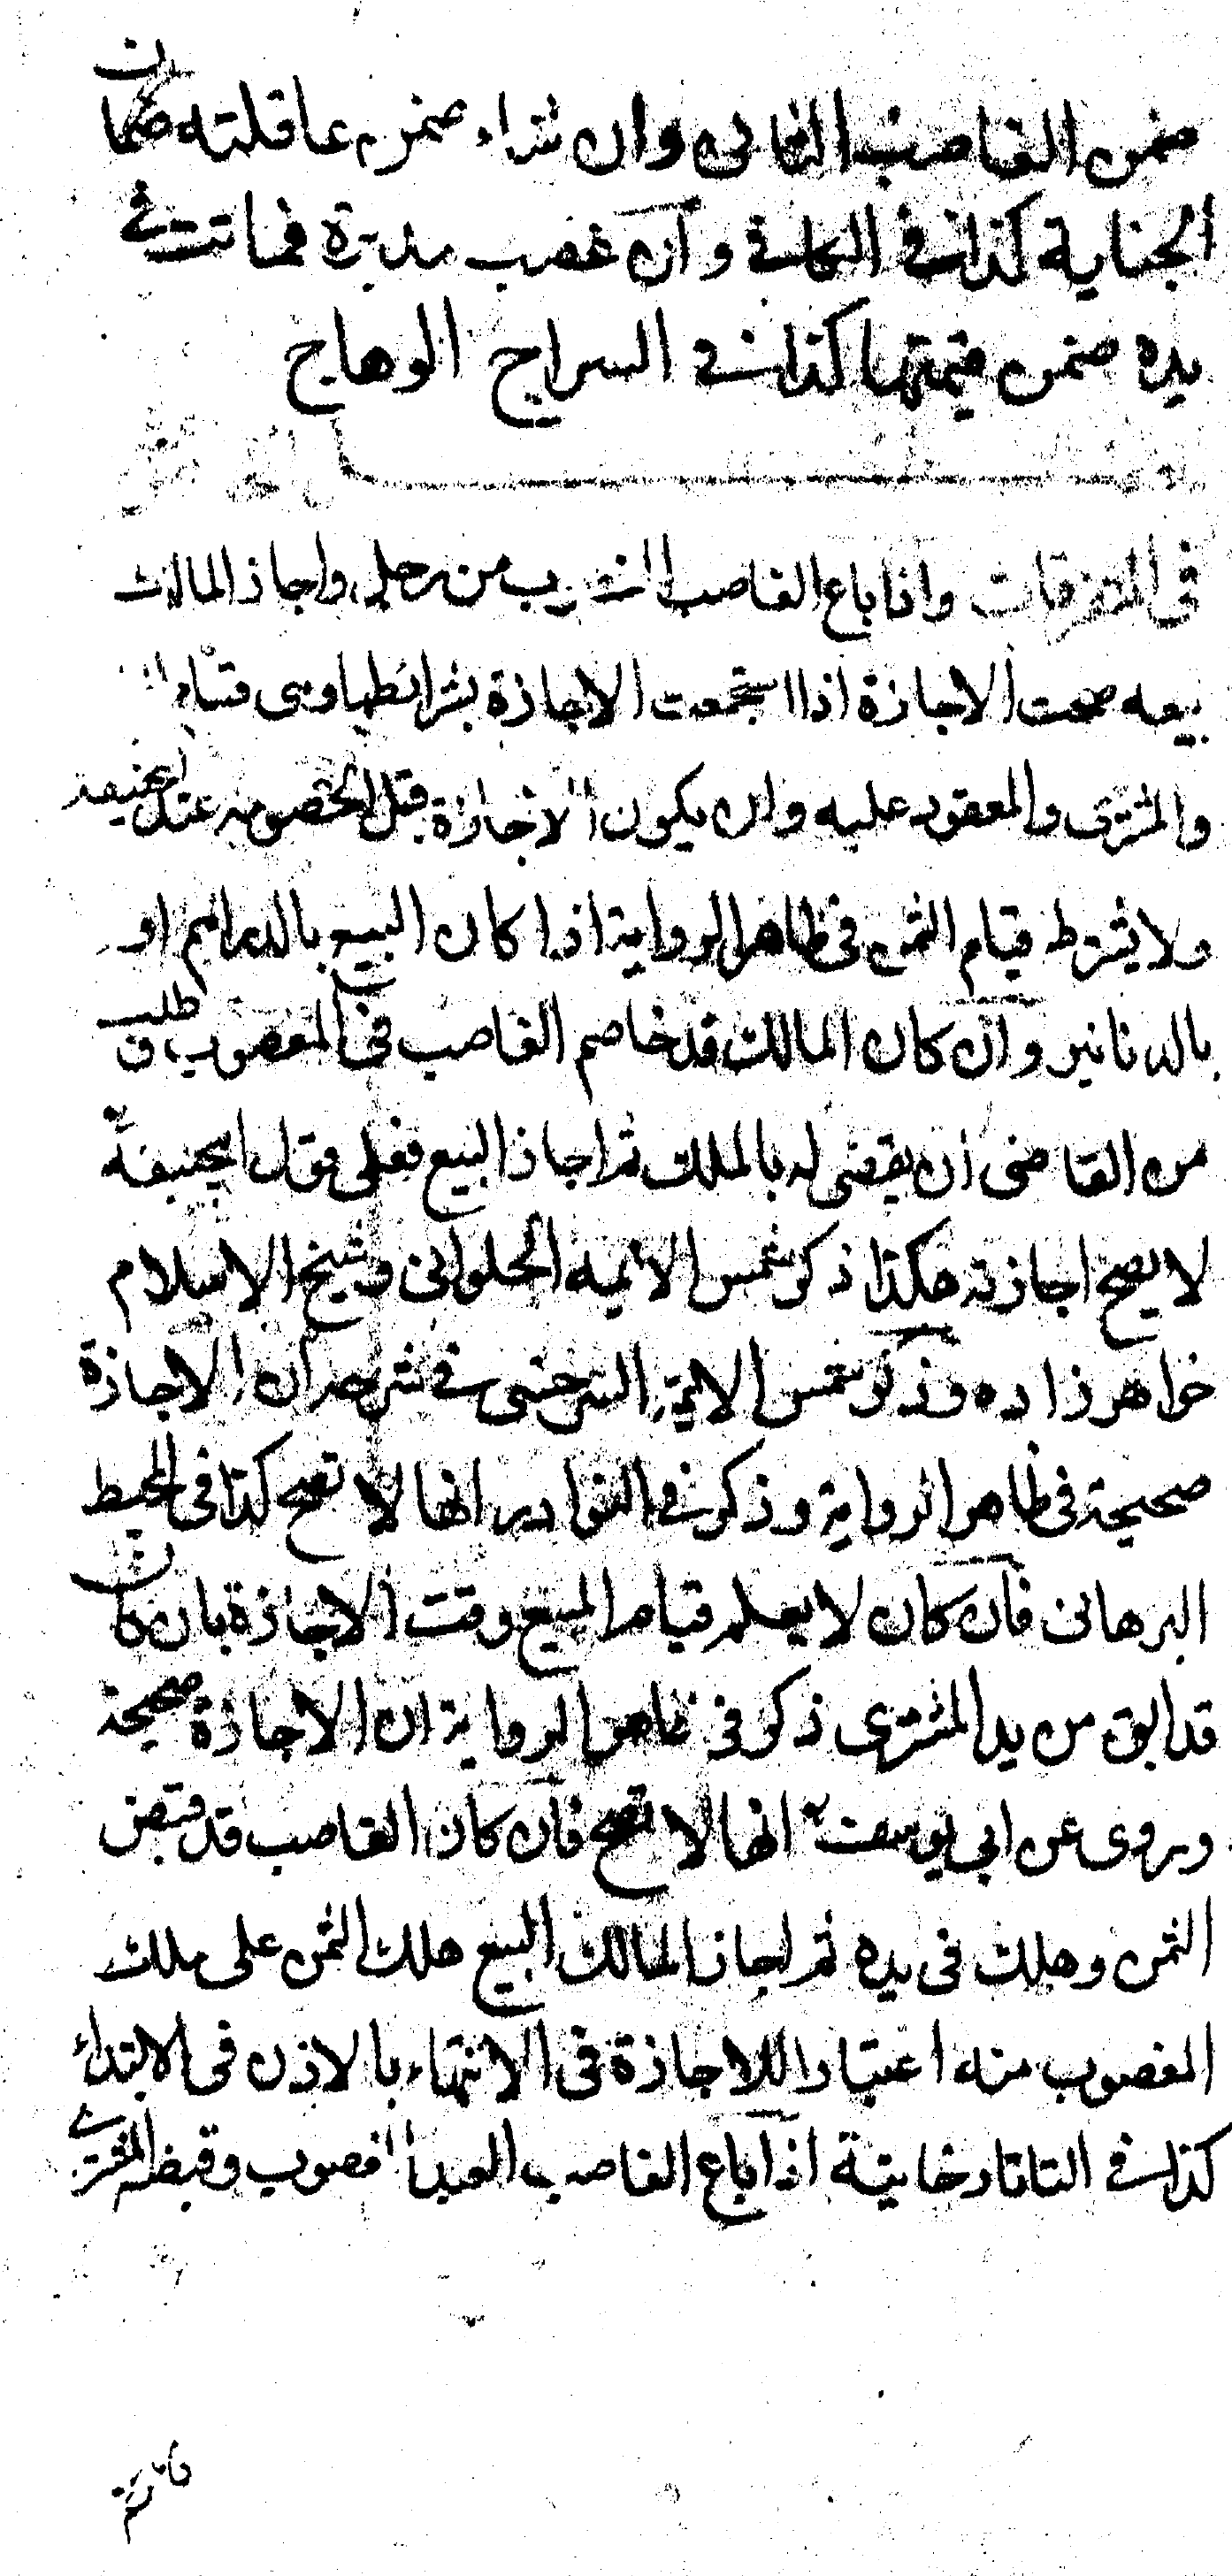 ضمن الغاصب الثانى وان شاء ضمن عاقلته ضمان
الجناية كذا فى الكافى وان غصب مدبرة فماتت فى
يده ضمن قيمتها كذا فى السراج الوهاج
فى المتفرقات واذا باع الغاصب المغصوب من رجل واجاز المالك
بيعه صحت الاجازة اذا استجمعت الاجازة بشرائطها وهى قيام
والمشترى والمعقود عليه وان يكون الاجازة قبل الخصومه عند ابيحنيفه
ولا يشترط قيام الثمن فى ظاهر الرواية اذا كان البيع بالدراهم او
بالدنانير وان كان المالك قد خاصم الغاصب فى المغصوب و طلب
من القاضى ان يقضى له بالملك ثم اجاز البيع فعلى قول ابيحنيفة
لا يصح اجازته هكذا ذكر شمس الائمه الحلوانى وشيخ الاسلام
خواهر زاده وذكر شمس الائمة السرخسى فى شرحه ان الاجازة
صحيحة فى ظاهر الرواية وذكر فى النوادر انها لا تصح كذا فى المحيط
البرهانى فان كان لا يعلم قيام المبيع وقت الاجازة بان كان
قد ابق من يد المشترى ذكر فى ظاهر الرواية ان الاجازة صحيحة
وروى عن ابى يوسف انها لا تصح فان كان الغاصب قد قبض
الثمن وهلك فى يده ثم اجاز المالك البيع هلك الثمن على ملك
المغصوب منه اعتبارا للاجازة فى الانتهاء بالاذن فى الابتداء
كذا فى التاتارخانية اذا باع الغاصب العبد المغصوب وقبضه المشترى